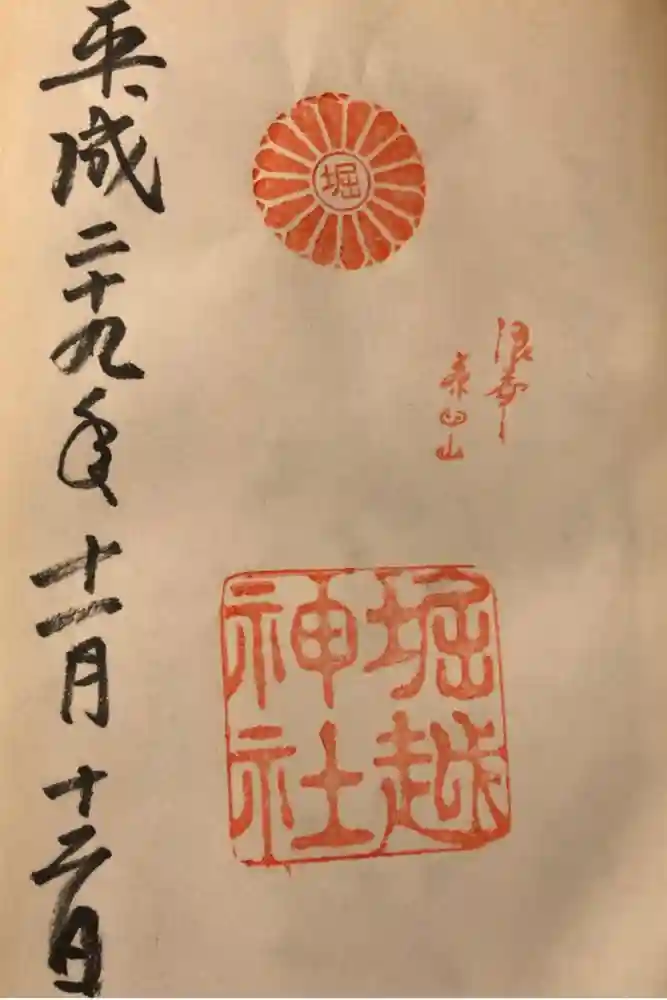 堀
浪華
茶臼山
堀越
神社
平成二十九年十一月十二日